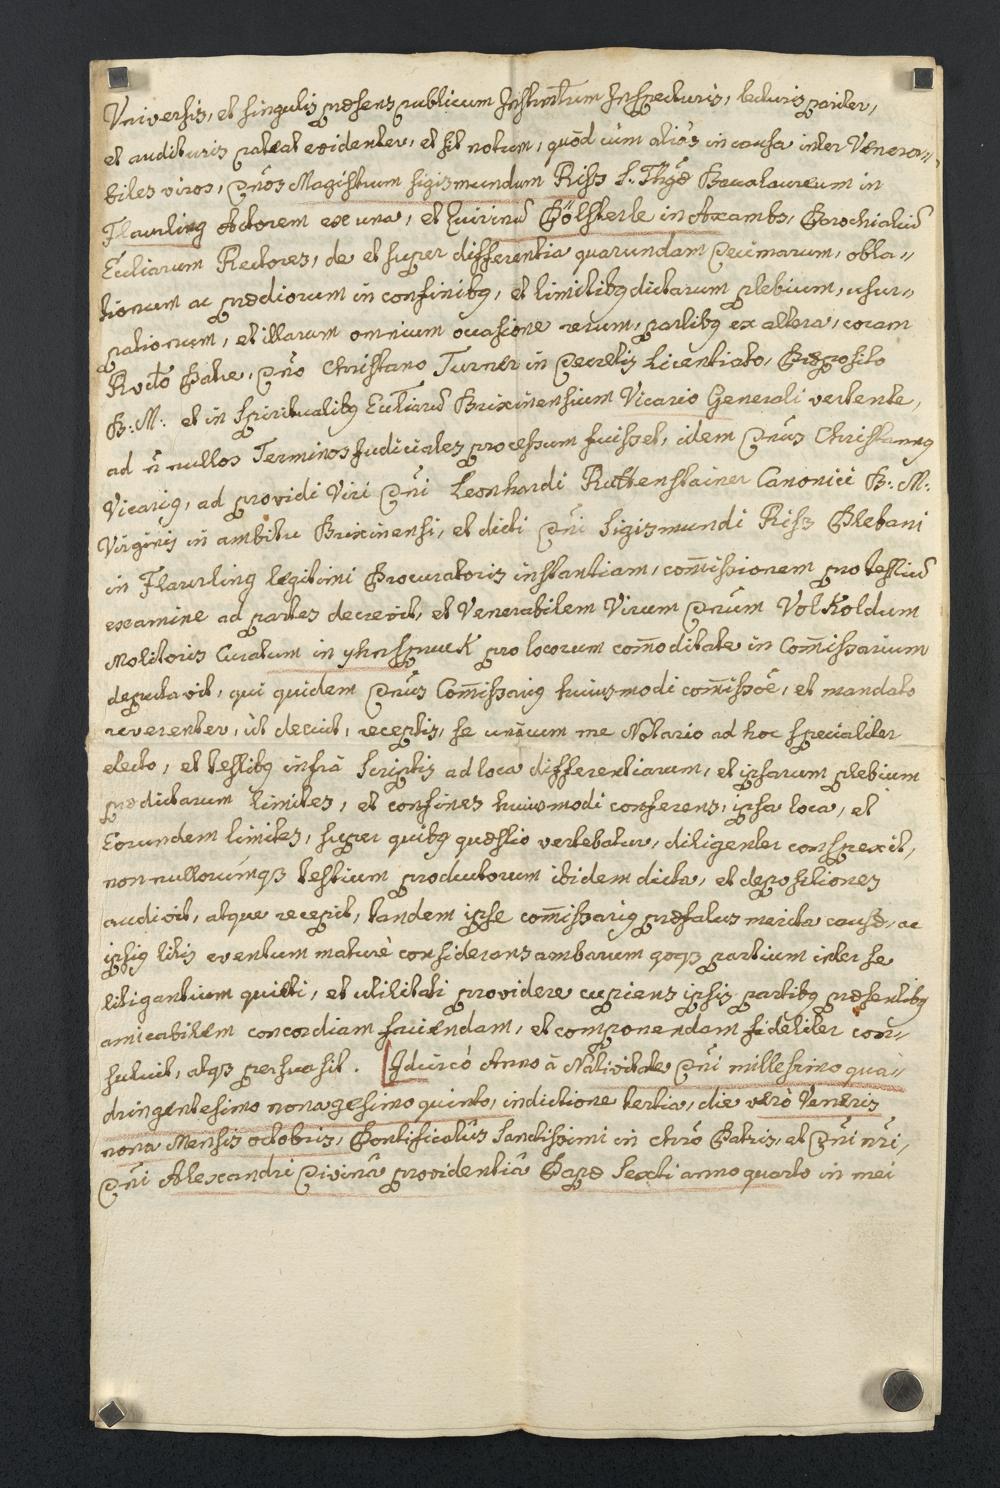 Universis, et singulis præsens publicum Instrmtum Inspecturis, lecturis pariter,
et audituris pateat evidenter, et sit notum, quòd cùm aliàs in causa inter Venera=
biles viros, Dños Magistrum sigismundum Riss S. Thgæ Baccalaureum in
Flaurling Actorem ex una, et Quirinũ Gölsterle in Axambs, Parochialiũ
Eccliarum Rectores, de et super differentia quarundam Decimarum, obla=
tionum ac prædiorum in confinibq, et limitibq dictarum plebium, usur=
pationum, et illarum omnium occasione rerum, partibq ex altera, coram
Rvdo Patre, Dño Christano Turner in Decretis Licentiato, Præposito
B: M: et in Spiritualibq Eccliarũ Brixinensium Vicario Generali vertente,
ad ñ nullos Terminos Judiciales processum fuisset, idem Dñus Christannq
Vicariq, ad providi Viri Dñi Leonhardi Ruttenstainer Canonici B: M:
Virginis in ambitu Brixinensi, et dicti Dñi Sigismundi Riss Plebani
in Flaurling legitimi Procuratoris instantiam, com̃issionem pro testiũ
examine ad partes decrevit, et Venerabilem Virum Dñum Volkoldum
Molitoris Curatum in yhnspruck pro locorum com̃oditate in Com̃issarium
deputavit, qui quidem Dñus Com̃issariq huiusmodi com̃issõe, et mandato
reverenter, ùt decuit, receptis, se unàcum me Notario ad hoc specialiter
electo, et testibq infrà Scriptis ad loca differentiarum, et ipsarum plebium
prædictarum limites, et confines huiusmodi conferens, ipsa loca, et
Eorundem limites, super quibq quæstio vertebatur, diligenter conspexit,
nonnullorúmq3 testium productorum ibidem dicta, et depositiones
audivit, atque recepit, tandem ipse com̃issariq præfatus merita causæ, ac
ipsiq litis eventum maturè considerans ambarum qoq3 partium inter se
litigantium quieti, et utilitati providere cupiens ipsis partibq præsentibq
amicabilem concordiam faciendam, et componendam fideliter con=
suluit, atq3 persuasit. Idcircò Anno à Nativitate Dñi millesimo qua=
dringentesimo nonagesimo quinto, indictione tertia, die verò Veneris
nona Mensis octobris, Pontificatûs Sanctissimi in chrõ Patris, et Dñi nr̃i,
Dñi Alexandri Divinâ providentiâ Papæ Sexti anno quarto in mei